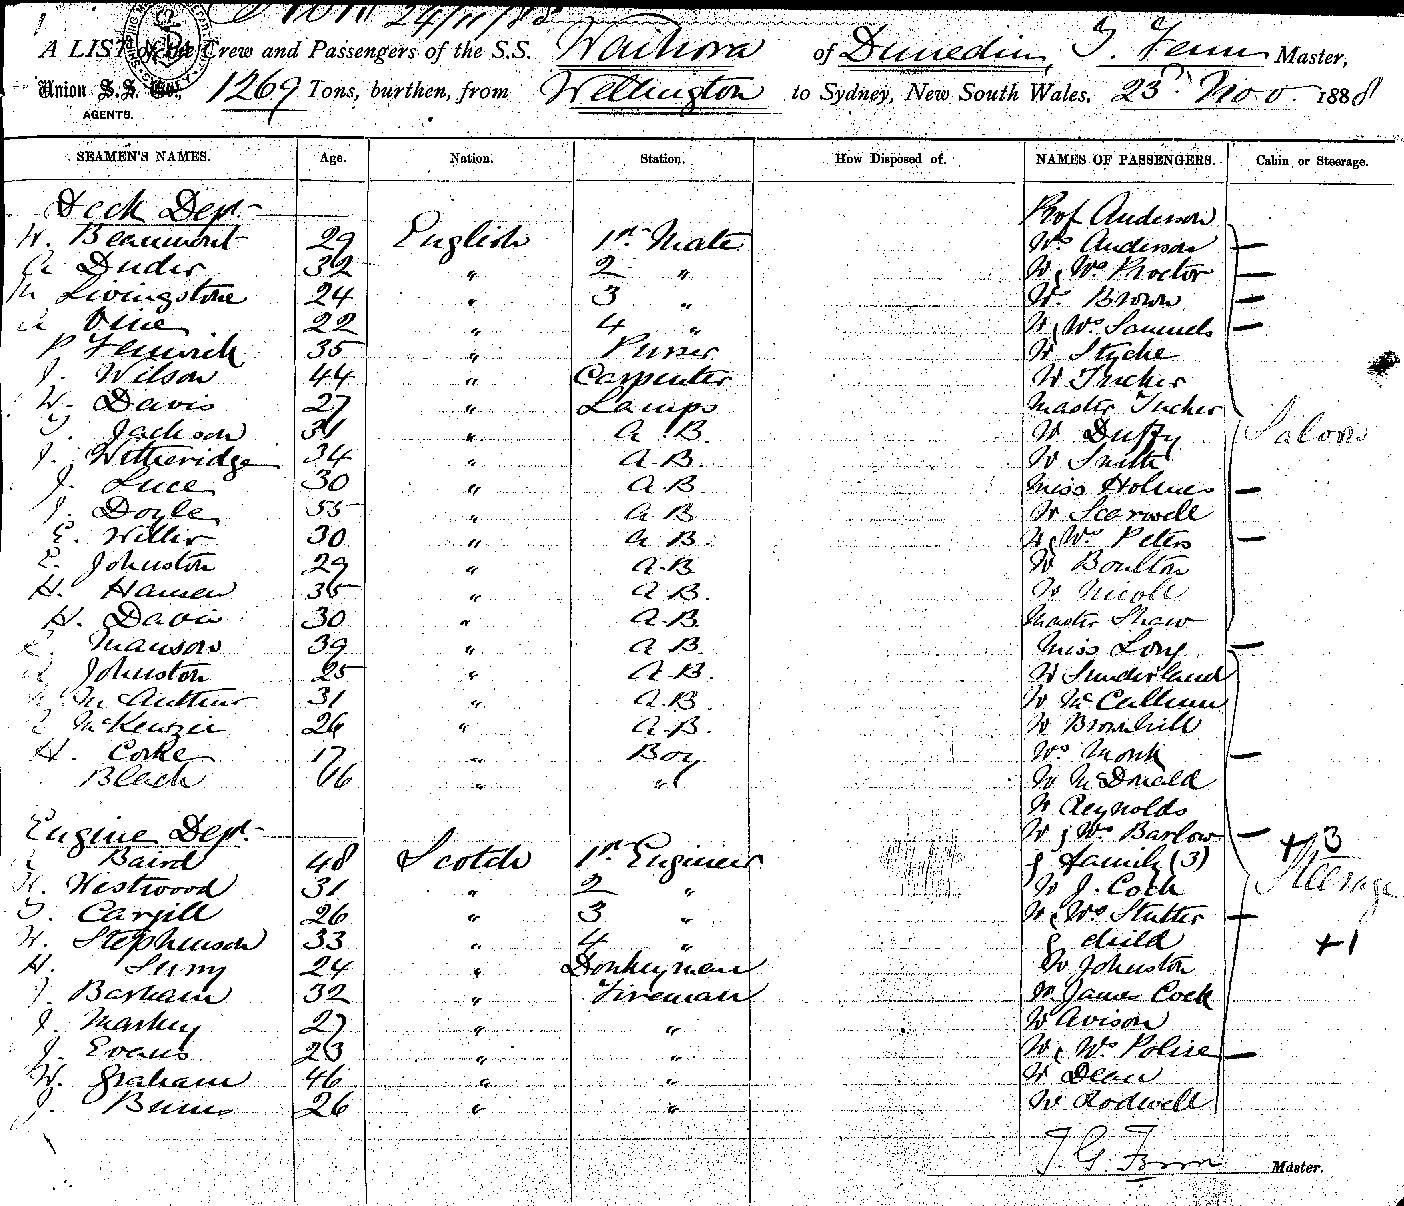 24/11/88
A LIST of the Crew and Passengers of the S.S. Waihora of Dunedin, Master,
Union S.S. Co., 1269 Tons, burthen, from Wellington to Sydney, New South Wales, 23rd Nov. 1888
AGENTS.
SEAMEN'S NAMES. Age. Nation. Station. How Disposed of. NAMES OF PASSENGERS. Cabin or Steerage.
Deck Dept. Prof Anderson
W. Beaumont 29 English 1st Mate Mrs Anderson —
Duder 32 " 2 " Mr & Mrs Proctor —
M Livingstone 24 " 3 " Mr Brown —
Vine 22 " 4 " Mr & Mrs Samuels —
P Fenwick 35 " Purser Mr Styche
J. Wilson 44 " Carpenter Mr Tucher
W. Davis 27 " Lamps Master Tucher
Jackson 31 " A.B. Mr Duffy Saloon
J. Witheridge 34 " A.B. Mr Smith
J. Luce 30 " A.B. Miss Holmes —
J. Doyle 55 " A.B. Mr Scarwell
E. 30 " A.B. Mr & Mrs Peters —
E. Johnston 29 " A.B. Mr Boulton
H. Hansen 35 " A.B. Mr Nicoll
H. Davis 30 " A.B. Master Shaw
Manson 39 " A.B. Miss Long —
Johnston 25 " A.B. Mr Sunderland
McArthur 31 " A.B. Mr McCallum
McKenzie 26 " A.B. Mr Brownhill
H. Corke 17 " Boy Mrs Monk —
Black 16 " " Mr McDonald
Mr Reynolds
Engine Dept. Mr & Mrs Barlow — +3
Baird 48 Scotch 1st Engineer & family (3) Steerage
Westwood 31 " 2 " Mr J. Cock
Cargill 26 " 3 " Mr & Mrs Stutter —
W. Stephenson 33 " 4 " & child +1
H. 24 " Donkeyman Mr Johnston
J. Barham 32 " Fireman Mr James Cock
J. Markey 27 " " Mr Avison
J. Evans 23 " " Mr & Mrs Polise —
W. Graham 46 " " Mr Dean
J. Burns 26 " " Mr Rodwell
Master.